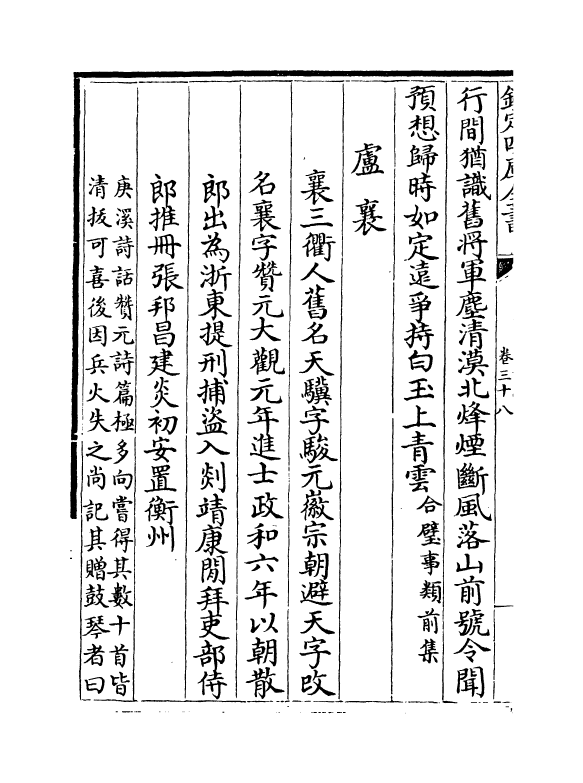 欽定四庫全書
卷三十八
行間猶識舊將軍塵清漠北烽煙斷風落山前號令聞
預想歸時如定遠爭持白玉上青雲合璧事類前集
盧襄
襄三衢人舊名天驥字駿元徽宗朝避天字改
名襄字贊元大觀元年進士政和六年以朝散
郎出為浙東提刑捕盜入剡靖康閒拜吏部侍
郎推冊張邦昌建炎初安置衡州
庚溪詩話贊元詩篇極多向嘗得其數十首皆
清拔可喜後因兵火失之尚記其贈鼓琴者曰